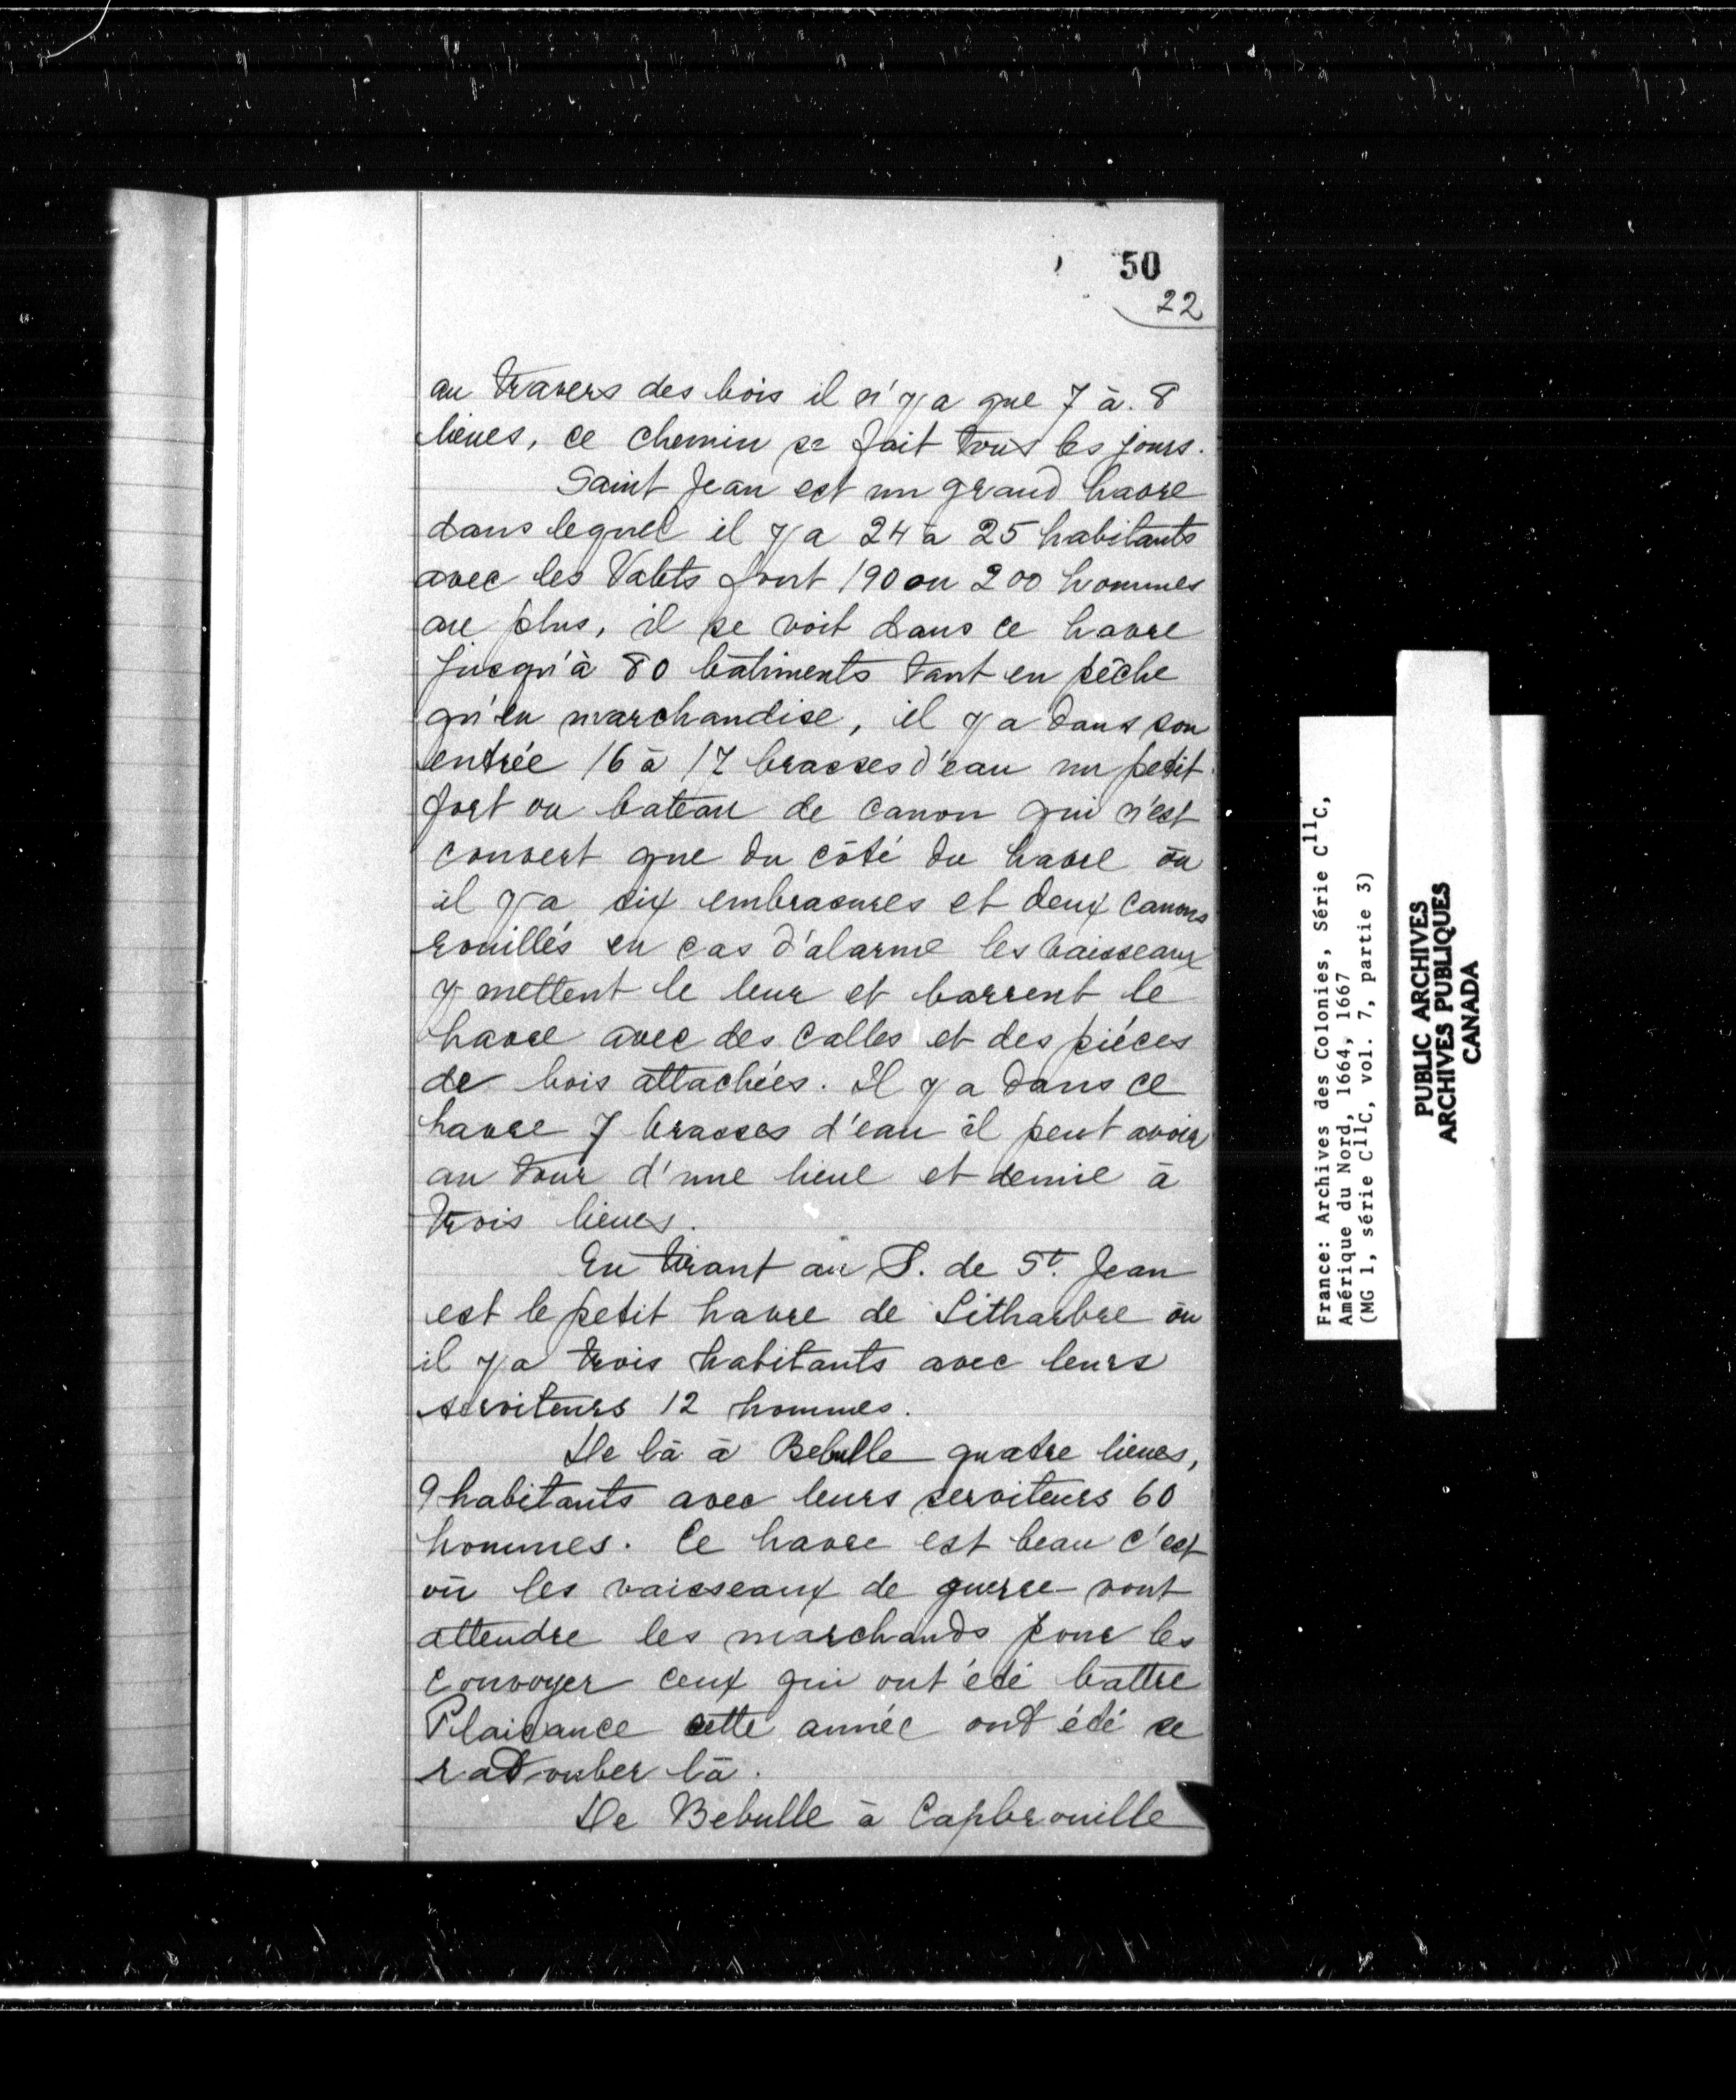 50
22
au travers des bois il n'y a que 7 à. 8
lieues, ce chemin se fait tous les jours.
Saint Jean est un grand havre
dans lequel il y a 24 à 25 habitants
avec les Valets font 190 ou 200 hommes
au plus, il se voit dans ce havre
jusqu'à 80 bâtiments tant en pêche
qu'en marchandise, il y a dans son
entrée 16 à 17 brasses d'eau un petit
fort ou bateau de canon qui n'est
couvert que du côté du havre où
il y a six embrasures et deux canons
rouillés en cas d'alarme les vaisseaux
y mettent le leur et barrent le
havre avec des calles et des piéces
de bois attachées. Il y a dans ce
havre 7 brasses d'eau il peut avoir
au tour d'une lieue et demie à
trois lieues.
En tirant au S. de St. Jean
est le petit havre de Litharbre où
il y a trois habitants avec leurs
serviteurs 12 hommes.
De là à Bebulle quatre lieues,
9 habitants avec leurs serviteurs 60
hommes. Ce havre est beau c'est
où les vaisseaux de guerre vont
attendre les marchands pour les
convoyer ceux qui ont été battre
Plaisance cette année ont été se
radouber là.
De Bebulle à Capbrouille
France: Archives des Colonies, Série C11C,
Amérique du Nord, 1664, 1667
(MG 1, série C11C, vol. 7, partie 3)
PUBLIC ARCHIVES
ARCHIVES PUBLIQUES
CANADA